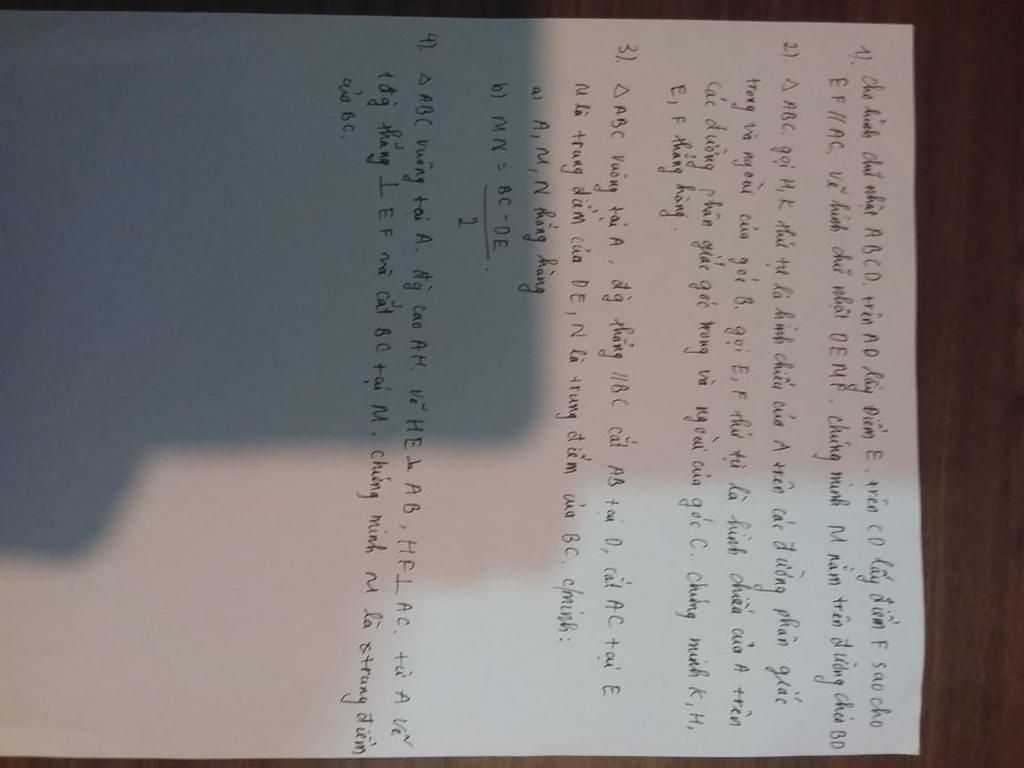 1). Cho hình chữ nhật ABCD. trên AD lấy điểm E. trên CD lấy điểm F sao cho
EF // AC. vẽ hình chữ nhật DEMF. chứng minh M nằm trên đường chéo BD
2) △ ABC. gọi H, K thứ tự là hình chiếu của A trên các đường phân giác
trong và ngoài của góc B. gọi E, F thứ tự là hình chiếu của A trên
các đường phân giác góc trong và ngoài của góc C. chứng minh K, H,
E, F thẳng hàng.
3) △ ABC vuông tại A, đg thẳng // BC cắt AB tại D, cắt AC tại E
N là trung điểm của DE, N là trung điểm của BC. c/minh:
a) A, M, N thẳng hàng
b) MN = BC - DE / 2.
4). △ ABC vuông tại A. đg cao AH. vẽ HE ⊥ AB, HF ⊥ AC. từ A vẽ
1 đg thẳng ⊥ EF và cắt BC tại M. chứng minh M là trung điểm
của BC.